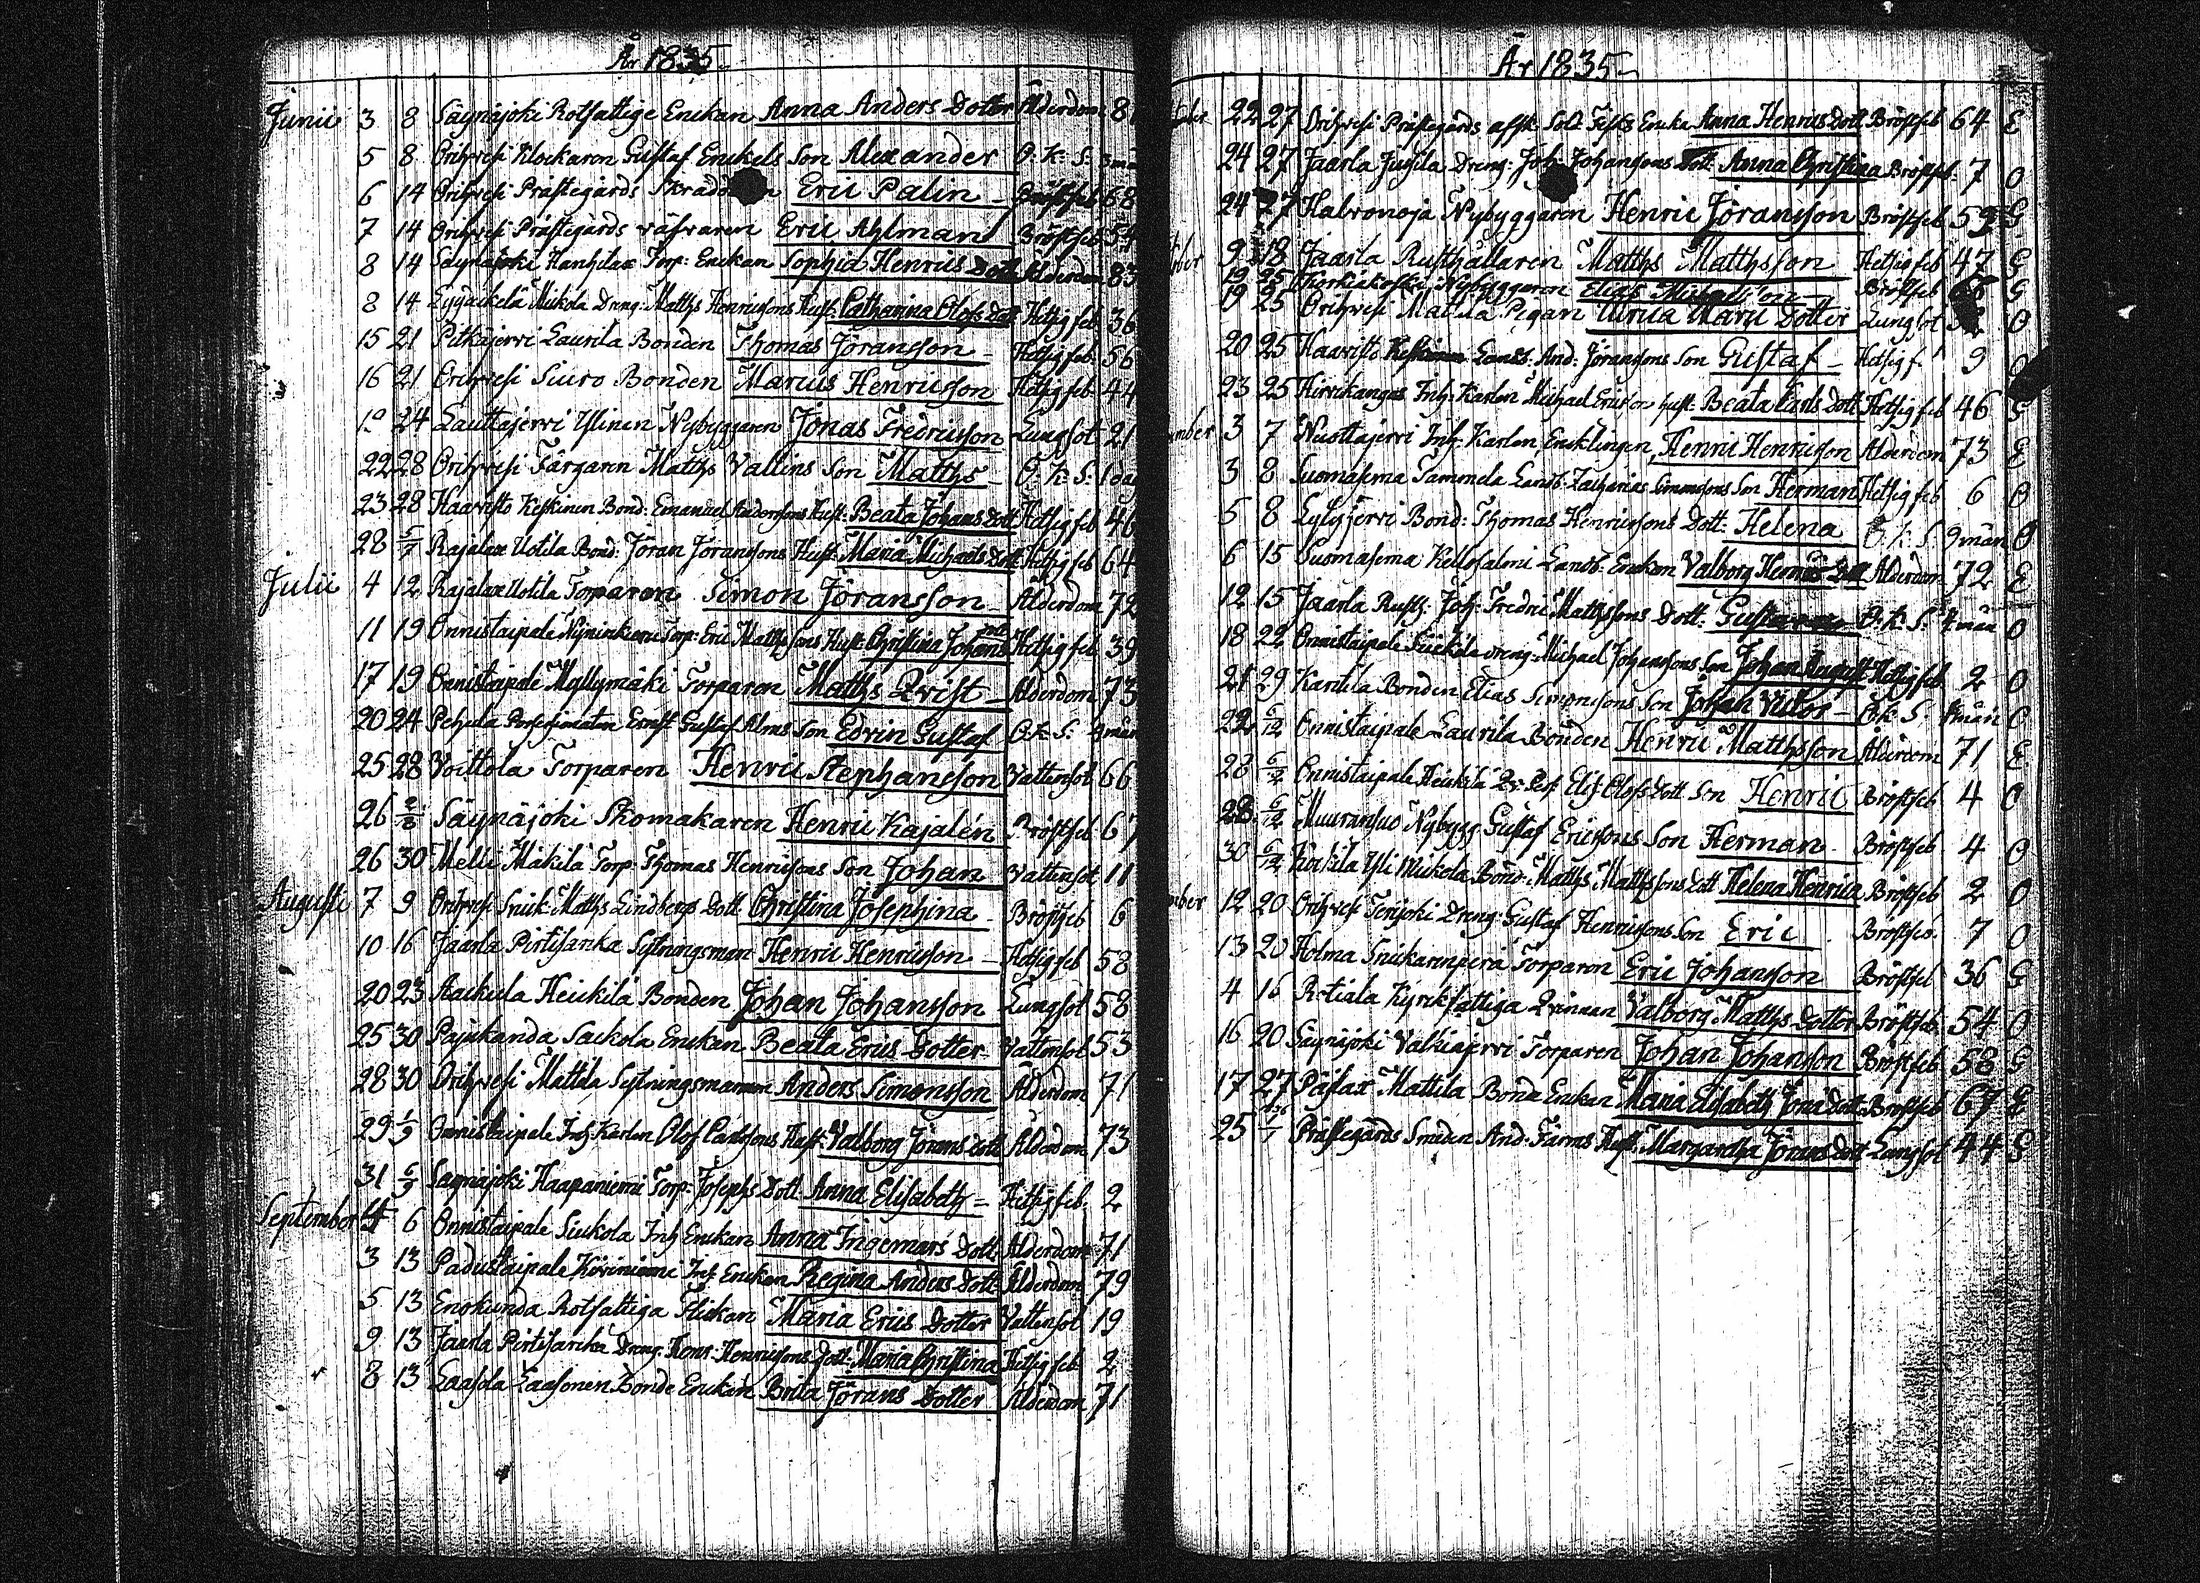 År 1835
Junii 3 8 Säynäjoki Rotfattige Enckan Anna Anders Dotter Ålderdom 81
5 8 Orihvesi Klockaren Gustaf Enckels Son Alexander O. K. S. 3 mån
6 14 Orihvesi Prästegårds Eric Palin Bröstfeb 68
7 14 Orihvesi Prästegårds väfvaren Eric Ahlman Bröstfeb 54
8 14 Säynäjoki Torp: Enckan Sophia Henrics Dott Ålderdom 83
8 14 Mickola Dreng: Matths Henricsons Hust: Catharina Olofs Dott Hetsig feb 36
15 21 Pitkäjerri Laurila Bonden Thomas Jöransson Hetsig feb: 56
16 21 Orihvesi Siuro Bonden Marcus Henricsson Hetsig feb. 44
24 Lauttajerri Ylinen Nybyggaren Jonas Fredricsson Lungsot 21
22 28 Orihvesi Färgaren Matths Vallins Son Matths O. K. S. 1 dag
23 28 Haavisto Keskinen Bond: Emanuel Andersons Hust: Beata Johans Dott Hetsig feb 46
28 5/7 Rajalax Uotila Bond: Jöran Joransons Hust: Maria Michaels Dott Hetsig feb 64
Julii 4 12 Rajalax Uotila Torparen Simon Jöransson Ålderdom 72
11 19 Onnistaipale Torp: Eric Matthssons Hust: Christina Johans Dott Hetsig feb 39
17 19 Onnistaipale Myllymäki Torparen Matths Qvist Ålderdom 73
20 24 Pehula Ernst Gustaf Alms Son Edvin Gustaf O. k. S. mån
25 28 Voittola Torparen Henric Stephansson Vattensot 66
26 2/8 Säynäjoki Skomakaren Henric Kajalén Bröstfeb 67
26 30 Melli Mäkilä Torp: Thomas Henricsons Son Johan Vattensot 11
Augusti 7 9 Orihvesi Snick: Matths Lindbergs Dott Christina Josephina Bröstfeb 6
10 16 Jaarla Pirtisanka Sytningsman Henric Henricsson Hetsig feb 58
20 23 Heickilä Bonden Johan Johansson Lungsot 58
25 30 Pajukanda Sackola Enckan Beata Erics Dotter Vattensot 53
28 30 Orihvesi Mattila Sytningsmannen Anders Simonsson Ålderdom 71
29 1/9 Onnistaipale Inh: Karlen Olof Carlssons Hust: Valborg Jörans Dott Ålderdom 73
31 6/9 Säynäjoki Haapaniemi Torp: Josephs Dott: Anna Elisabeth Hetsig feb. 2
September 4 6 Onnistaipale Sickola Inh Enckan Anna Ingemars Dott Ålderdom 71
3 13 Padustaipale Inh: Enckan Regina Anders Dott Ålderdom 79
5 13 Enokunda Rotfattiga Flickan Maria Erics Dotter Vattensot 19
9 13 Jaarla Pirtisanka Dreng: Henr: Henricsons Dott: Maria Christina Hetsig feb 2
8 13 Laasola Laasonen Bonde Enckan Brita Jörans Dotter Ålderdom 71
År 1835
22 27 Orihvesi Prästegårds afsk. Sold: Encka Anna Henrics Dott Bröstfeb 64 E
24 27 Jaarla Jussila Dreng: Joh: Johanssons Dott: Anna Christina Bröstfeb. 7 O
24 27 Halvonoja Nybyggaren Henric Jöransson Bröstfeb 59 G
9 18 Jaarla Rusthållaren Matths Matthsson Hetsig feb 47 G
19 25 Nybyggaren Elias Michaelsson Bröstfeb G
19 25 Orihvesi Mattila Pigan Ulrica Maria Dotter Lungsot O
20 25 Haavisto And: Jöranssons Son Gustaf Hetsig f. 9 O
23 25 Hirvikangas Inh: Karlen Michael Ericson hust: Beata Carls Dott Hetsig feb 46 G
3 7 Nuottajerri Inh: Karlen, Encklingen, Henric Henricsson Ålderdom 73 E
3 8 Suomasema Tammela Landb: Zacharias Simonssons Son Herman Hetsig feb 6 O
5 8 Lylyjerri Bond: Thomas Henricssons Dott: Helena O. k. S. 9 mån O
6 15 Suomasema Kellosalmi Landb: Enckan Valborg Henrics Dott Ålderdom 72 E
12 15 Jaarla Rusth: Joh: Fredric Matthssons Dott: Gustava O. k. S. mån O
18 22 Onnistaipale Dreng: Michael Johanssons Son Johan August Hetsig feb 2 O
21 29 Karttila Bonden Elias Simonssons Son Johan Victor O. k. S. mån O
22 6/12 Onnistaipale Laurila Bonden Henric Matthsson Ålderdom 71 E
28 6/12 Onnistaipale Heickilä Elis: Olofs Dott Son Henric Bröstfeb 4 O
28 6/12 Muuransuo Nybygg: Gustaf Ericssons Son Herman Bröstfeb 4 O
30 6/12 Yli Mickola Bond: Matths Matthssons Dott Helena Henrica Bröstfeb 2 O
12 20 Orihvesi Dreng: Gustaf Henricssons Son Eric Bröstfeb. 7 O
13 20 Holma Snickarinperä Torparen Eric Johansson Bröstfeb 36 G
4 16 Kyrkfattiga Qvinnan Valborg Matths Dotter Bröstfeb 54 O
16 20 Säynäjoki Valkiajerri Torparen Johan Johansson Bröstfeb 58 G
17 27 Päjlax Mattila Bond Enckan Maria Elisabeth Jona Dott Bröstfeb 67 E
25 Prästegårds Smeden And: Hust: Margaretha Jörans Dott Lungsot 44 G